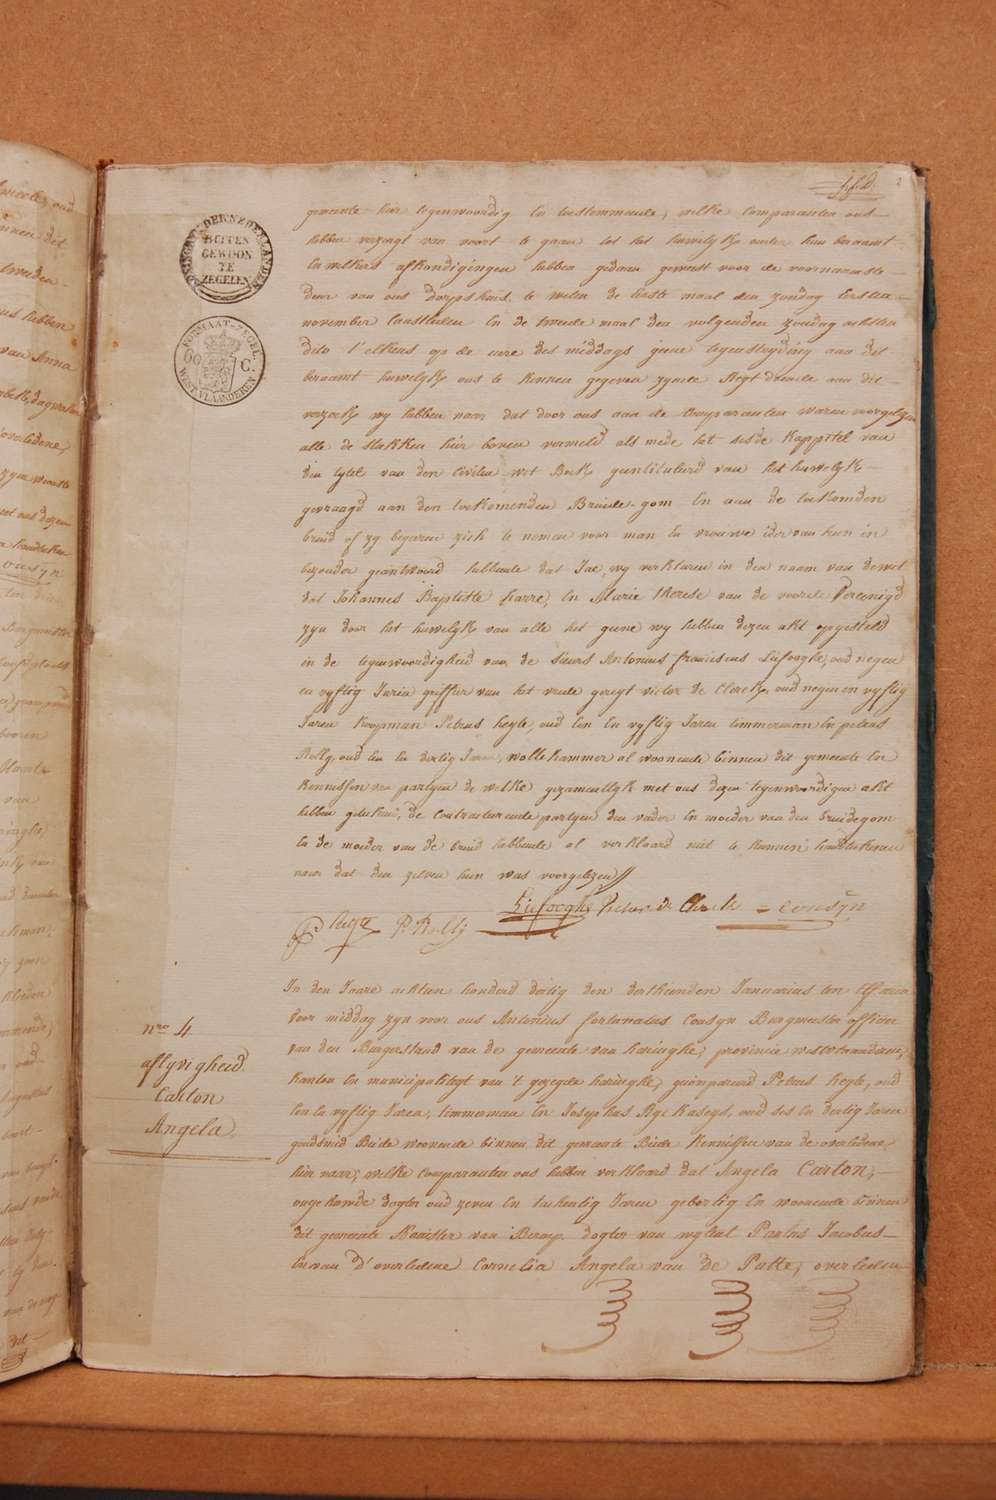 KONINGRYK DER NEDERLANDEN
BUITEN
GEWOON
TE
ZEGELEN
FORMAAT-ZEGEL
60 C.
WEST-VLAANDEREN
2
gemeente hier tegenwoordig En toestemmende, welke comparanten ons
hebben verzogt van voort te gaan tot het huwelijk onder hun beraamt
En welkers afkondigingen hebben gedaan geweest voor de voornaamste
deur van ons dorpshuis, te weten de Eerste maal den zondag Eersten
november laastleden En de tweede maal den volgenden zondag achsten
dito t'elkens op de ure des middags geene tegenstryding aan dit
beraamt huwelyk ons te kennen gegeven zynde Regt doende aan dit
verzoek wy hebben naer dat door ons aan de Comparanten waren voorgelezen
alle de stukken hier boven vermeld als mede het sesde Kappitel van
den tytel van den Civilen wet Boek geintituleerd van het huwelyk
gevraagd aan den toekomenden Bruide-gom En aan de toekomden
bruid of zy begeren zich te nemen voor man En vrouwe ider van hun in
bezonder geantwoord hebbende dat Jae, wy verklaren in den naam van de wet
dat Johannes Baptiste Harre, En Marie Therese van de voorde Vereenigd
zyn door het huwelyk van alle het geene wy hebben dezen akt opgesteld
in de tegenwoordigheid van de Sieurs Antonius franciscus Liefooghe, oud negen
en vyftig Jaren griffier van het vrede geregt victor de Clerck, oud negen en vyftig
Jaren Koopman Petrus heyte, oud Een En vyftig Jaren timmerman En petrus
Rolly, oud Een En dertig Jaren, wollekammer al woonende binnen dit gemeente En
Kennissen van partyen de welke gezamentlyk met ons dezen tegenwoordigen akt
hebben getekend, de Contracterende partyen den vader En moeder van den bruidegom
En de moeder van de bruid hebbende al verklaard niet te kunnen handtekenen
naer dat den zelven hun was voorgelezen
P. Rolly Liefooghe Victor de Clerck Cousyn
In den Jaare achtien honderd dertig den derthienden Januarius ten Elf uren
voor middag zyn voor ons Antonius fortunatus Cousyn Burgmeester officier
van den Burgerstand van de gemeente van haringhe, provincie westvlaanderen,
kanton En municipaliteyt van 't gezegde haringhe, gecompareerd Petrus heyte, oud
Een En vyftig Jaren, timmerman En Josephus Kaseys, oud ses En dertig Jaren
goudsmid Beide woonende binnen dit gemeente Beide Kennissen van de overledene
hier naer, welke comparanten ons hebben verklaard dat Angela Carton,
ongehuwde dogter oud zeven En tachentig Jaren geboortig En woonende binnen
dit gemeente van Beroep dogter van wylent Paulus Jacobus
En van d'overledene Cornelia Angela van de Putte, overleden
nro 4
aflyvigheid
Carton
Angela